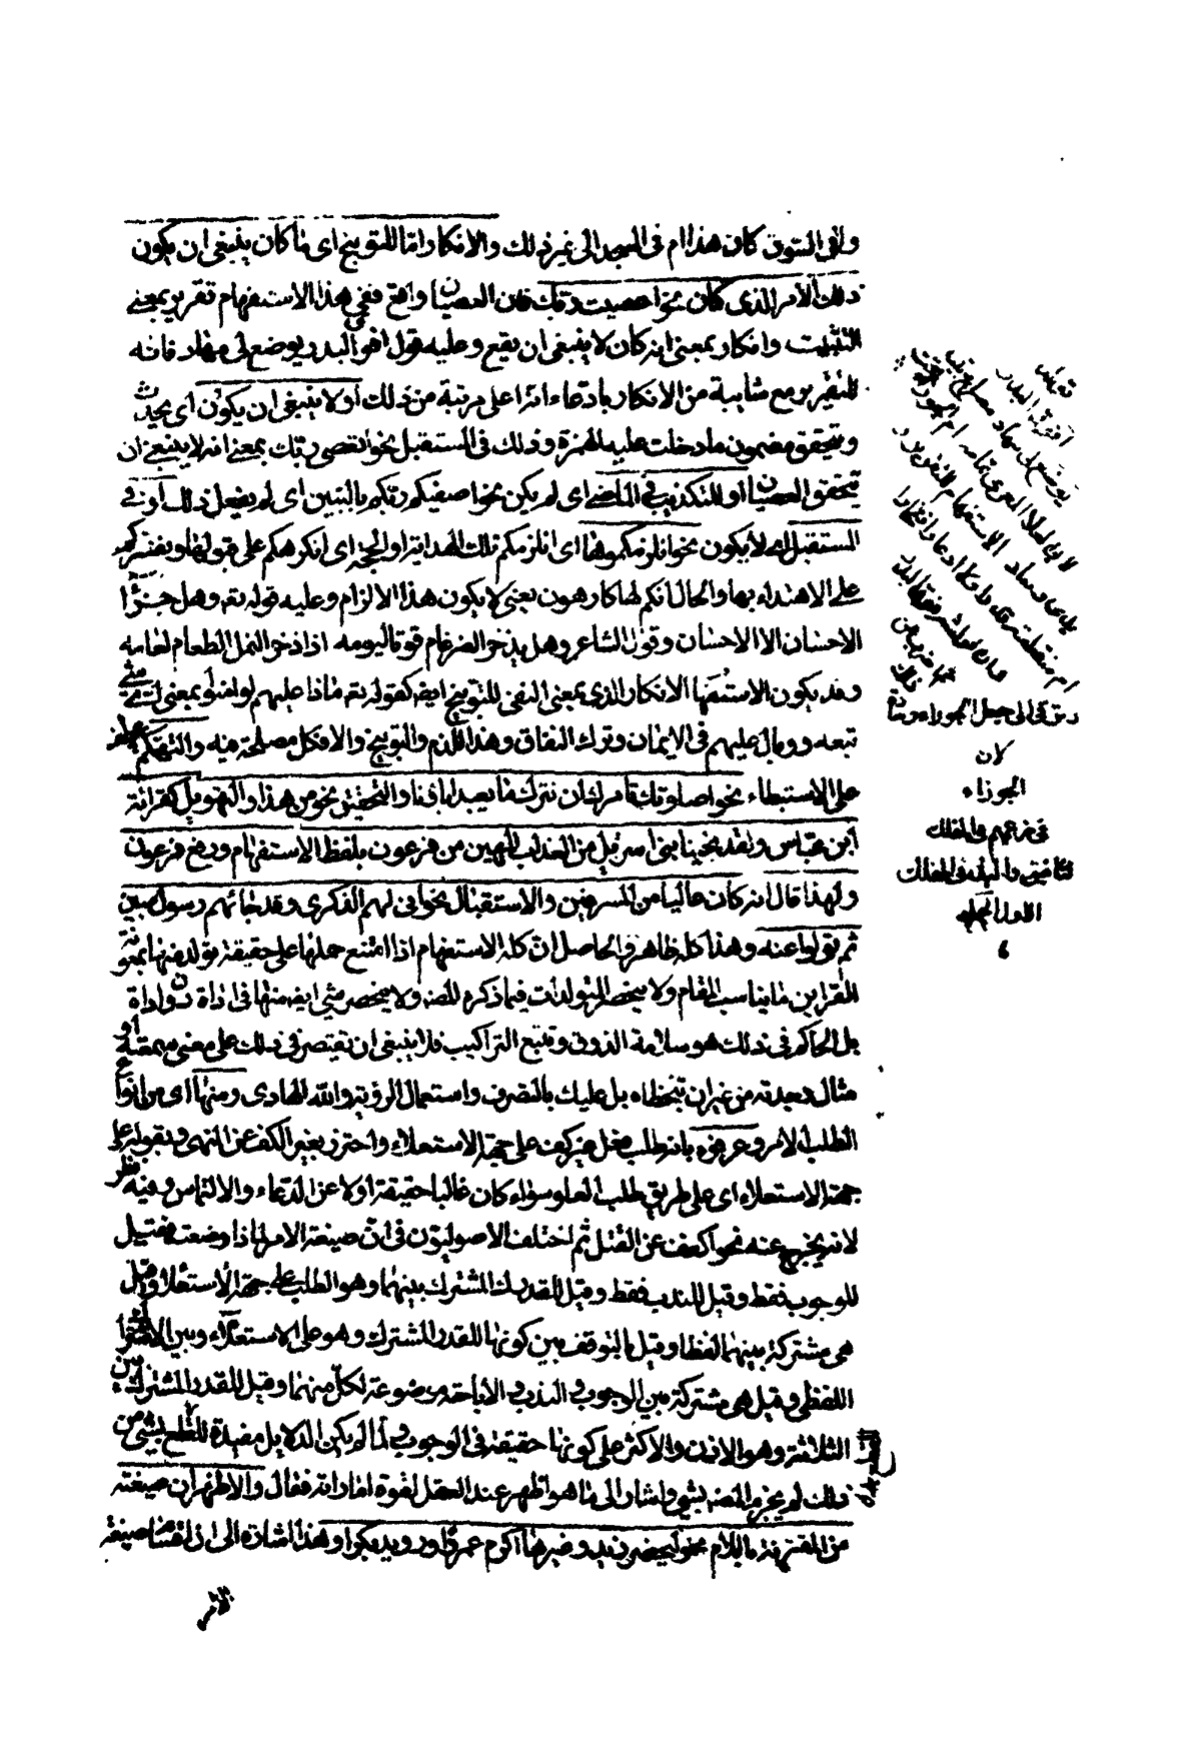 او فى السوق كان هذا ام فى المسجد الى غير ذلك والانكار اما للتوبيخ اى ما كان ينبغى ان يكون
ذلك الامر الذى كان نحو اعصيت ربك فان العصيان واقع ففى هذا الاستفهام تقرير بمعنى
التثبيت وانكار بمعنى انه كان لا ينبغى ان يقع وعليه قول افوق البدر يوضع لى مهاد فانه
للتقرير مع شايبة من الانكار بادعاء انه اعلى مرتبة من ذلك او لا ينبغى ان يكون اى يحدث
ويتحقق مضمون ما دخلت عليه الهمزة وذلك فى المستقبل نحو اتعصى ربك بمعنى انه لا ينبغى ان
يتحقق العصيان او للتكذيب فى الماضى اى لم يكن نحو افاصفيكم ربكم بالبنين اى لم يفعل ذلك او فى
المستقبل اى لا يكون نحو انلزمكموها اى انلزمكم تلك الهداية او الحجة اى انكرهكم على قبولها ونقسركم
على الاهتداء بها والحال انكم لها كارهون يعنى لا يكون هذا الالزام وعليه قوله تع وهل جزاء
الاحسان الا الاحسان وقول الشاعر وهل يذخر الضرغام قوتا ليومه اذا ذخر النمل الطعام لعامه
وقد يكون الاستفهام الانكار الذى بمعنى النفى للتوبيخ ايضا كقوله تع ماذا عليهم لو امنوا بمعنى اى
تبعه ووبال عليهم فى الايمان وترك النفاق وهذا للذم والتوبيخ والا فكل مصلحة فيه والتهكم عطف
على الاستبطاء نحو اصلوتك تامرك ان نترك ما يعبد اباؤنا والتحقير نحو من هذا والتهويل كقراءة
ابن عباس ولقد نجينا بنى اسرئيل من العذاب المهين من فرعون بلفظ الاستفهام ورفع فرعون
ولهذا قال انه كان عاليا من المسرفين والاستبعاد نحو انى لهم الذكرى وقد جائهم رسول مبين
ثم تولوا عنه وهذا كله ظاهر والحاصل ان كلمة الاستفهام اذا امتنع حملها على حقيقته تولد منها بمعونة
القراين ما يناسب المقام ولا ينحصر المتولدات فيما ذكره المصنف ولا ينحصر شئ ايضا منها فى اداة دون اداة
بل الحاكم فى ذلك هو سلامة الذوق وتتبع التراكيب فلا ينبغى ان تقتصر فى ذلك على معنى سمعته او
مثال وجدته من غير ان تتخطاه بل عليك بالتصرف واستعمال الروية والله الهادى ومنها اى من انواع
الطلب الامر وعرفوه بانه طلب فعل غير كف على جهة الاستعلاء واحترز بغير الكف عن النهى وبقوله على
جهة الاستعلاء اى على طريق طلب العلو سواء كان عاليا حقيقة او لا عن الدعاء والالتماس وفيه نظر
لانه يخرج عنه نحو اكفف عن القتل ثم اختلف الاصوليون فى ان صيغة الامر لماذا وضعت فقيل
للوجوب فقط وقيل للندب فقط وقيل للقدر المشترك بينهما وهو الطلب على جهة الاستعلاء وقيل
هى مشتركة بينهما لفظا وقيل بالتوقف بين كونها للقدر المشترك وهو على الاستعلاء وبين الاشتراك
اللفظى وقيل هى مشتركة بين الوجوب والندب والاباحة موضوعة لكل منهما وقيل للقدر المشترك بين
الثلاثة وهو الاذن والاكثر على كونها حقيقة فى الوجوب ولما لم يكن الدلايل مفيدة للقطع بشئ من
ذلك لم يجزم المصنف بشئ واشار الى ما هو اظهر عند العقل لقوة اماراته فقال والاظهر ان صيغته
من المقترنة باللام نحو ليحضر زيد وغيرها اكرم عمروا ورويد بكرا وهذا اشارة الى ان اقسام صيغة
الامر
افوق البدر
يوضع لى مهاد
لان
الجوزاء
فى زعمهم فى الفلك
الاول